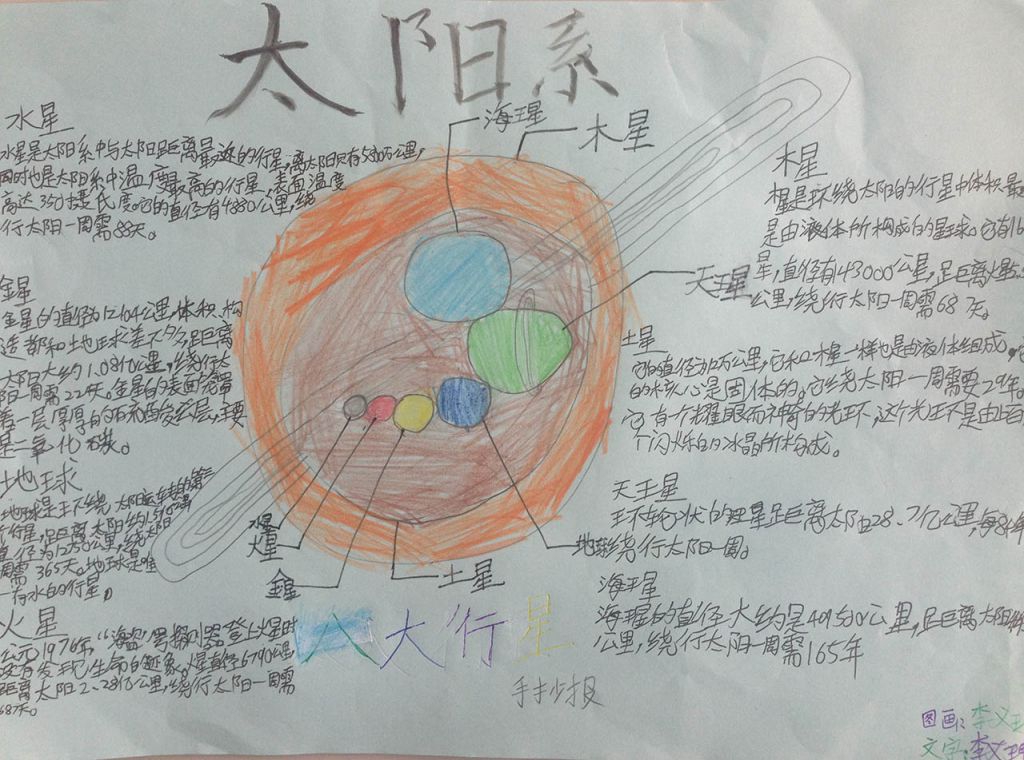 太阳系
水星
水星是太阳系中与太阳距离最近的行星,离太阳只有5790万公里,
同时也是太阳系中温度最高的行星,表面温度
高达350摄氏度。它的直径有4880公里,绕
行太阳一周需88天。
金星
金星的直径为12104公里,体积、构
造都和地球差不多,距离
太阳大约1.08亿公里,绕行太
阳一周需22天。金星的表面
着一层厚厚的硫酸云层,主要
是二氧化碳。
地球
地球是
行星,距离太阳约
直径为公里,绕太阳
周需365天。地球是唯
一有水的行星。
火星
公元1976年,“海盗”号探测器登上火星时
没有发现生命的迹象。直径6790公里
距离太阳2、28亿公里,绕行太阳一周需
687天。
海王星
木星
天王星
水星
火星
金星
土星
地球
木星
是环绕太阳的行星中体积最
是由液体所构成的星球。它有16
星,直径有43000公里,距离
公里,绕行太阳一周需68天。
土星
它的直径为12万公里,它和木星一样也是由液体组成,
的核心是固体的。它绕太阳一周需要29年。
它有个耀眼而神奇的光环,这个光环不是由上百
个闪烁的冰晶所构成。
天王星
环轮状的卫星距离太阳28、7亿公里,每84年
绕行太阳一周。
海王星
海王星的直径大约是491500公里,距离太阳
公里,绕行太阳一周需165年
八大行星
手抄报
图画:李义
文字:李义